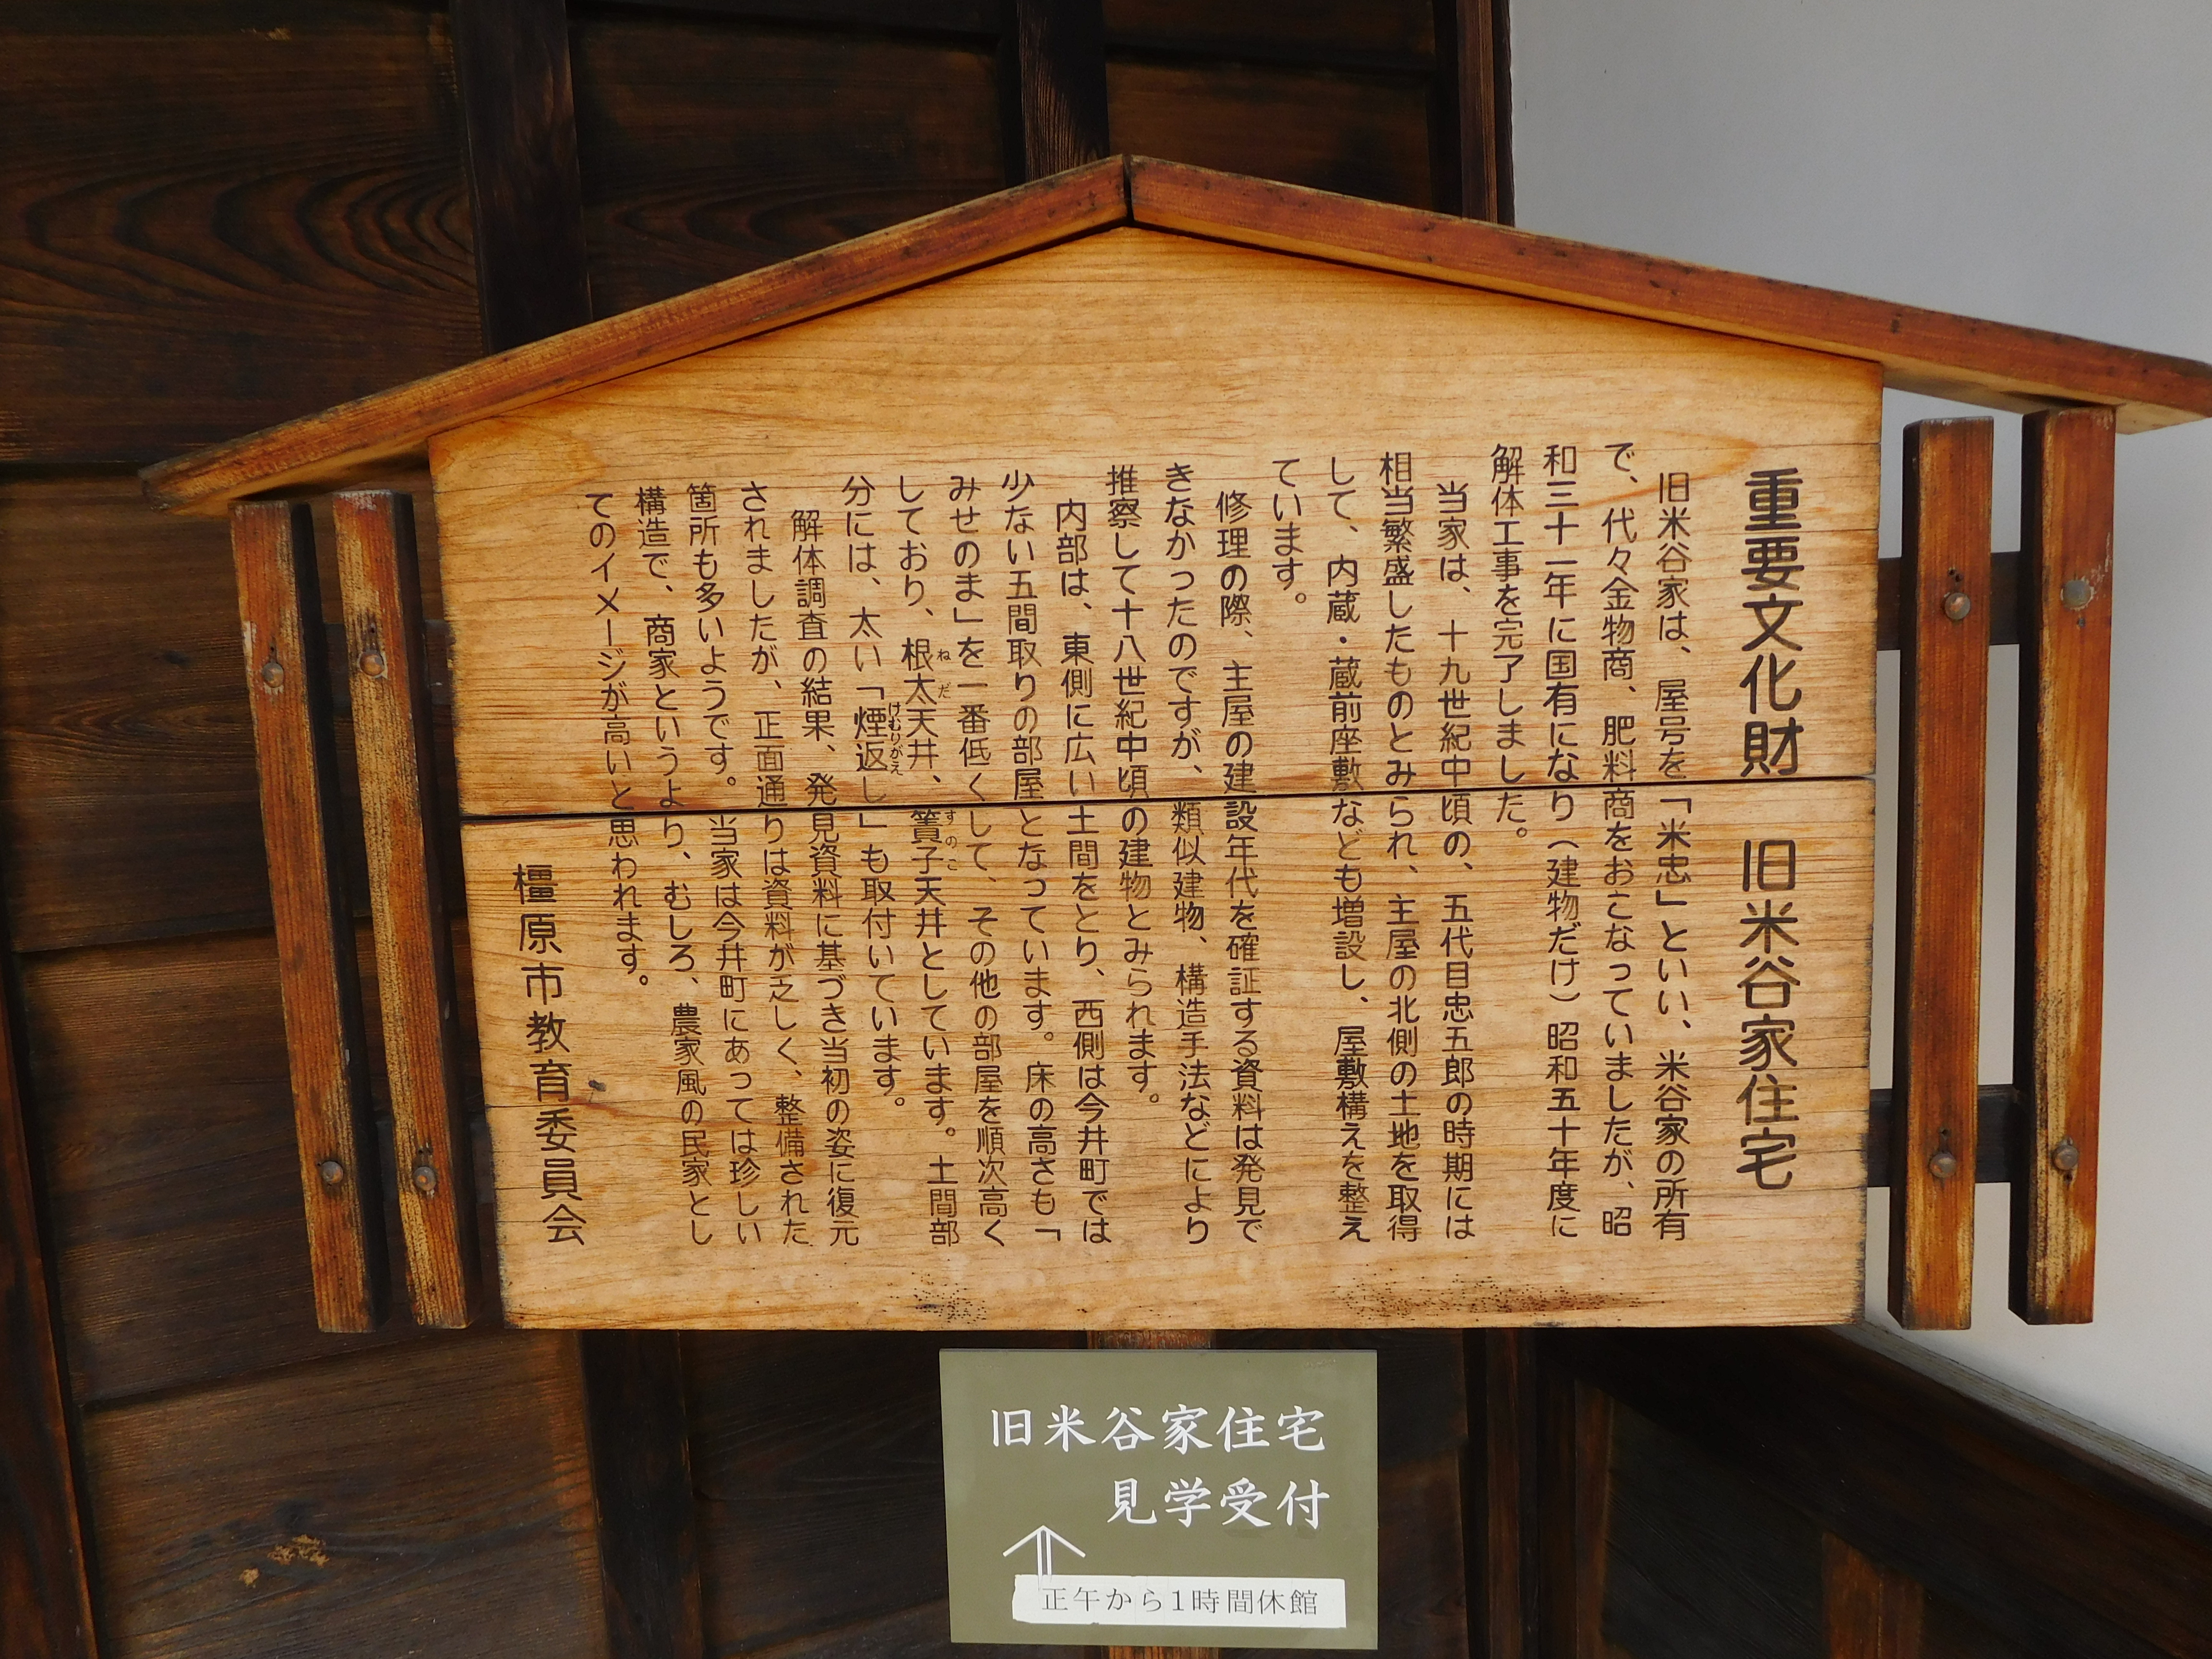 重要文化財　旧米谷家住宅
旧米谷家は、屋号を「米忠」といい、米谷家の所有
で、代々金物商、肥料商をおこなっていましたが、昭
和三十一年に国有になり（建物だけ）昭和五十年度に
解体工事を完了しました。
当家は、十九世紀中頃の、五代目忠五郎の時期には
相当繁盛したものとみられ、主屋の北側の土地を取得
して、内蔵・蔵前座敷なども増設し、屋敷構えを整え
ています。
修理の際、主屋の建設年代を確証する資料は発見で
きなかったのですが、類似建物、構造手法などにより
推察して十八世紀中頃の建物とみられます。
内部は、東側に広い土間をとり、西側は今井町では
少ない五間取りの部屋となっています。床の高さも「
みせのま」を一番低くして、その他の部屋を順次高く
しており、根太天井、簀子天井としています。土間部
ねだ
すのこ
分には、太い「煙返し」も取付いています。
けむりがえ
解体調査の結果、発見資料に基づき当初の姿に復元
されましたが、正面通りは資料が乏しく、整備された
箇所も多いようです。当家は今井町にあっては珍しい
構造で、商家というより、むしろ、農家風の民家とし
てのイメージが高いと思われます。
橿原市教育委員会
旧米谷家住宅
見学受付
正午から1時間休館